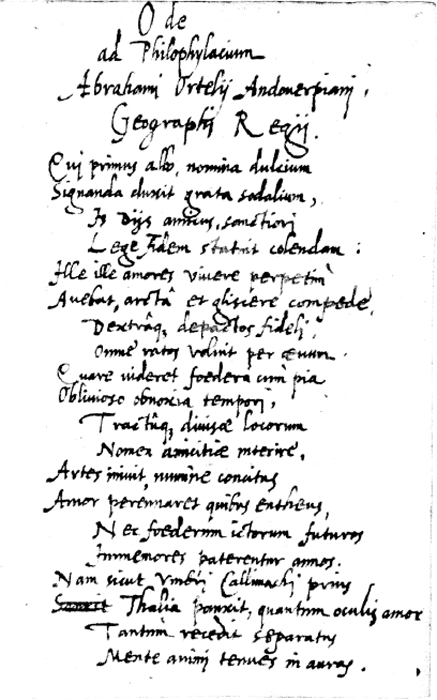 Ode
ad Philophylacium
Abrahami Ortelij Andouerpianj,
Geographi Regij.
Quj primus albo, nomina dulcium
Signanda duxit grata sodalium,
Is Dijs amicus, sanctiorj
Lege fidem statuit colendam:
Ille ille amores viuere perpetim
Auebat, arctâ et gliscere compede,
Dextrâq, depactos fidelj,
Omne ratos voluit per æuum.
Quare uideret foedera cùm pia
Obliuioso obnoxia temporj,
Tractûq, diuisæ locorum
Nomen amicitiæ interire,
Artes iniuit, numine concitus
Amor perennaret quibus entheus,
Nec foederum ictorum futuros
Immemores paterentur annos.
Nam sicut Vmbrj Callimachj prius
Thalia panxit, quantum oculis amor
Tantum recedit separatus
Mente animi tenues in auras.